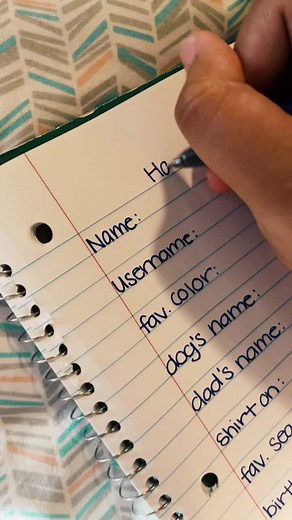 Ha
Name:
Username:
fav. color:
dog's name:
dad's name:
shirt on:
fav. sea
birt